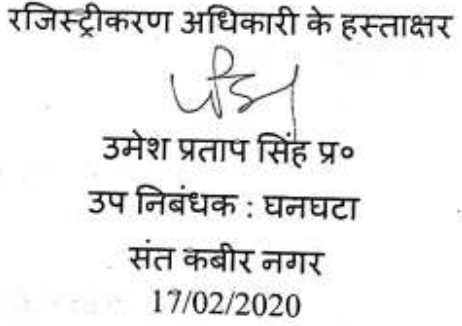 रजिस्ट्रीकरण अधिकारी के हस्ताक्षर
उमेश प्रताप सिंह प्र०
उप निबंधक : घनघटा
संत कबीर नगर
17/02/2020